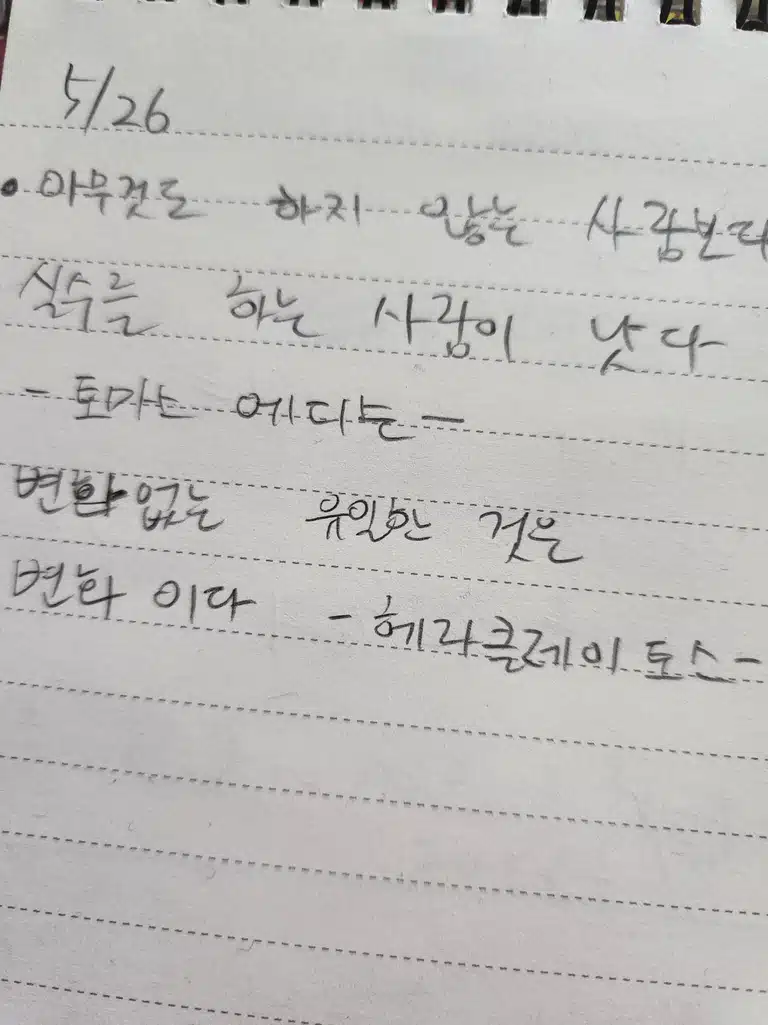 5/26
• 아무것도 하지 않는 사람보다
실수를 하는 사람이 낫다
- 토마스 에디슨 -
변화 없는 유일한 것은
변화 이다 - 헤라클레이토스 -